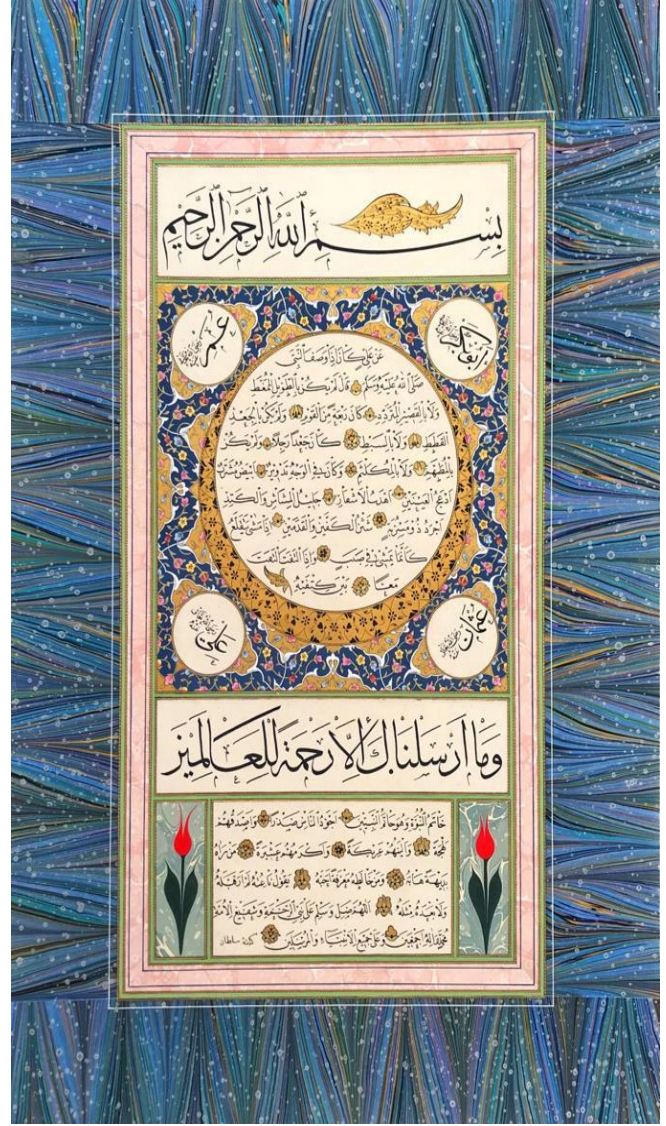 بسم الله الرحمن الرحيم
ابو بكر
عمر
عن علي كان اذا وصف النبي
صلى الله عليه وسلم قال لم يكن بالطويل الممغط
ولا بالقصير المتردد وكان ربعة من القوم ولم يكن بالجعد
القطط ولا بالسبط كان جعدا رجلا ولم يكن
بالمطهم ولا بالمكلثم وكان في الوجه تدوير ابيض مشرب
ادعج العينين اهدب الاشفار جليل المشاش والكتد
اجرد ذو مسربة شثن الكفين والقدمين اذا مشى يتقلع
كانما يمشي في صبب واذا التفت التفت
معا بين كتفيه
عثمان
علي
وما ارسلناك الا رحمة للعالمين
خاتم النبوة وهو خاتم النبيين اجود الناس صدرا واصدقهم
لهجة والينهم عريكة واكرمهم عشيرة من رآه
بديهة هابه ومن خالطه معرفة احبه يقول ناعته لم ار قبله
ولا بعده مثله اللهم صل وسلم على نبي الرحمة وشفيع الامة
محمد وآله اجمعين وعلى جميع الانبياء والمرسلين